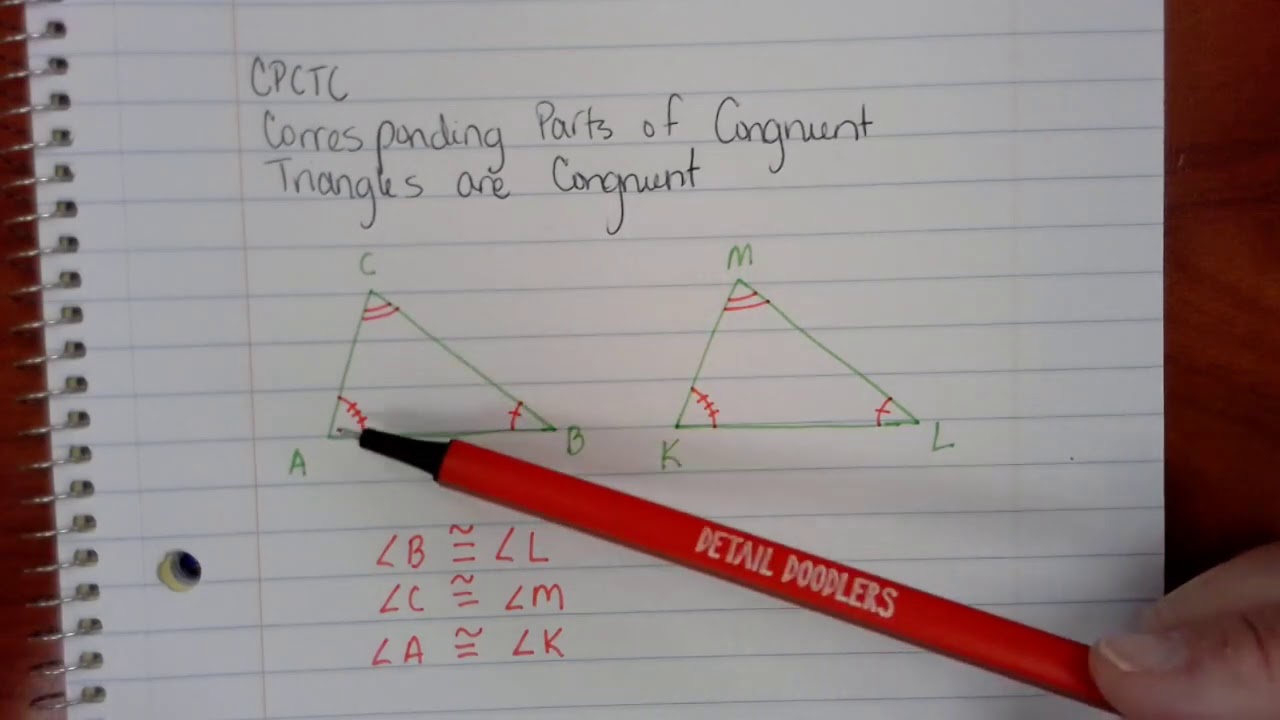 CPCTC
Corresponding Parts of Congruent
Triangles are Congruent
C
M
A
B
K
L
DETAIL DOODLERS
∠B ≅ ∠L
∠C ≅ ∠M
∠A ≅ ∠K